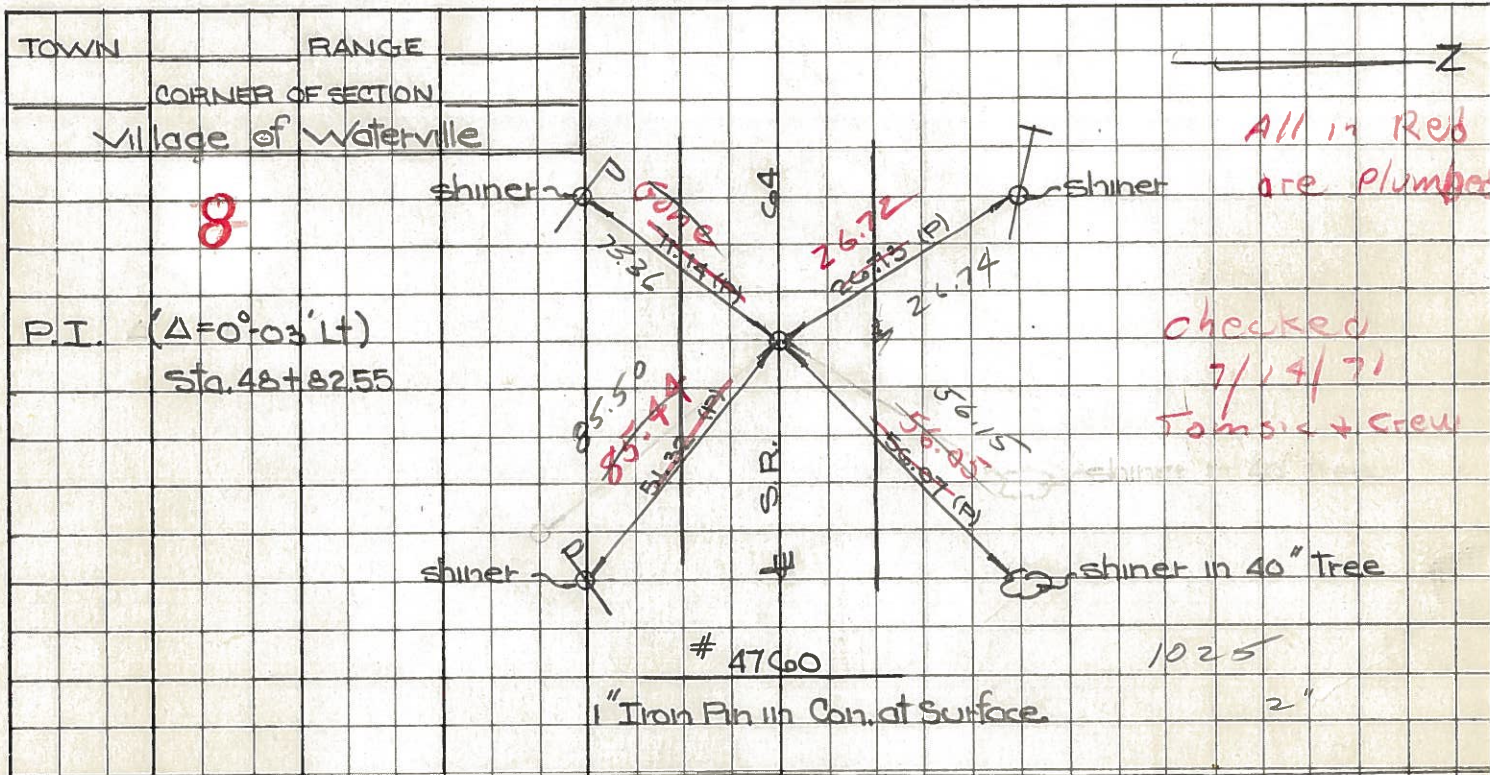 TOWN RANGE
CORNER OF SECTION
Village of Waterville
8
P.I. (Δ=0°-03' Lt)
Sta. 48+82.55
N
All in Red
are Plumbed
checked
7/14/71
Tomsic + Crew
shiner
Gone
73.36
64
26.72
26.73 (P)
26.74
shiner
85.50
85.44
51.32 (P)
S.R.
56.15
56.05
56.07 (P)
shiner in 40" Tree
shiner
℄
shiner in 40" Tree
# 4760
1" Iron Pin in Con. at Surface
1025
2"